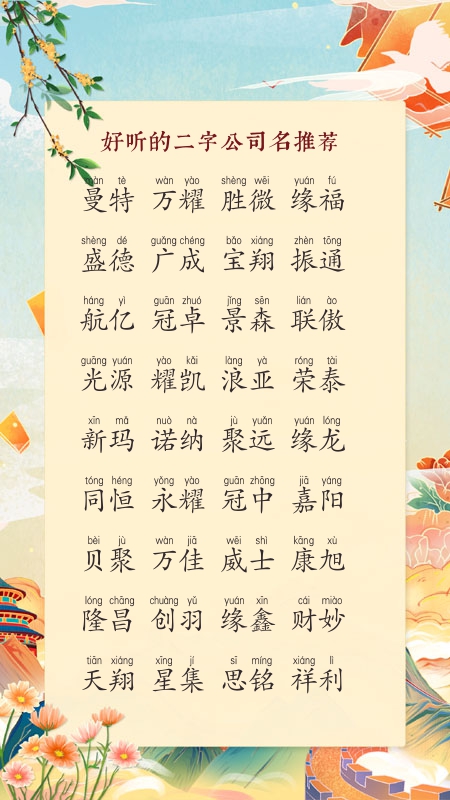 好听的二字公司名推荐
màn tè wàn yào shèng wēi yuán fú
曼特 万耀 胜微 缘福
shèng dé guǎng chéng bǎo xiáng zhèn tōng
盛德 广成 宝翔 振通
háng yì guān zhuó jǐng sēn lián ào
航亿 冠卓 景森 联傲
guāng yuán yào kǎi làng yà róng tài
光源 耀凯 浪亚 荣泰
xīn mǎ nuò nà jù yuǎn yuán lóng
新玛 诺纳 聚远 缘龙
tóng héng yǒng yào guān zhōng jiā yáng
同恒 永耀 冠中 嘉阳
bèi jù wàn jiā wēi shì kāng xù
贝聚 万佳 威士 康旭
lóng chāng chuàng yǔ yuán xīn cái miào
隆昌 创羽 缘鑫 财妙
tiān xiáng xīng jí sī míng xiáng lì
天翔 星集 思铭 祥利